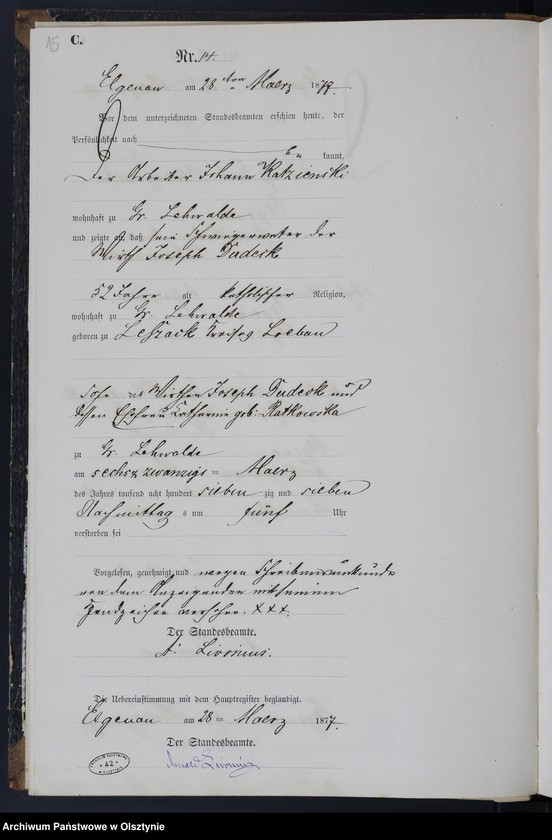 15
C.
Nr. 14.
Elgenau am 28 ten Maerz 1877.
Vor dem unterzeichneten Standesbeamten erschien heute, der
Persönlichkeit nach
be kannt,
der Arbeiter Johann Katzienski
wohnhaft zu Gr. Lehwalde
und zeigte an, daß sein Schwiegervater der
Wirth Joseph Dudeck
52 Jahre alt katholischer Religion,
wohnhaft zu Gr. Lehwalde
geboren zu Leszack Kreises Loebau
Sohn des Wirthen Joseph Dudeck und
dessen Ehefrau Katharina geb: Ratkowska
zu Gr. Lehwalde
am sechs & zwanzigs ten Maerz
des Jahres tausend acht hundert sieben zig und sieben
Nachmittag s um fünf Uhr
verstorben sei
Vorgelesen, genehmigt und wegen Schreibensunkunde
von dem Anzeigenden mit seinem
Handzeichen versehen. XXX.
Der Standesbeamte.
A: Livonius.
Die Uebereinstimmung mit dem Hauptregister beglaubigt.
Elgenau am 28 ten Maerz 1877.
Der Standesbeamte.
Livonius
42
Archiwum Państwowe w Olsztynie